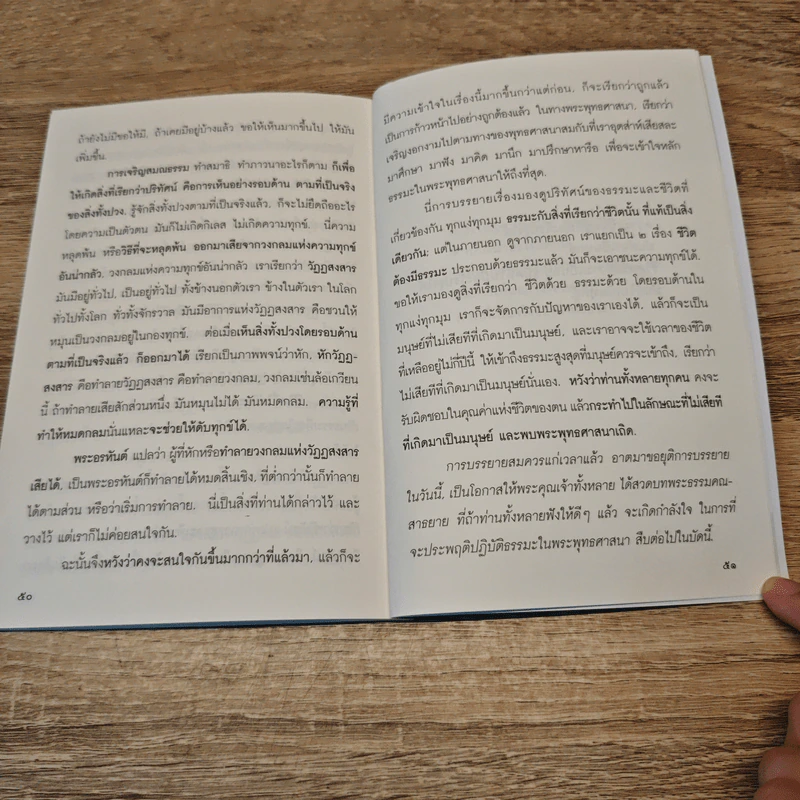 ถ้ายังไม่มีขอให้มี, ถ้าเคยมีอยู่บ้างแล้ว ขอให้เห็นมากขึ้นไป ให้มัน
เพิ่มขึ้น.
การเจริญสมณธรรม ทำสมาธิ ทำภาวนาอะไรก็ตาม ก็เพื่อ
ให้เกิดสิ่งที่เรียกว่าปริทัศน์ คือการเห็นอย่างรอบด้าน ตามที่เป็นจริง
ของสิ่งทั้งปวง. รู้จักสิ่งทั้งปวงตามที่เป็นจริงแล้ว, ก็จะไม่ยึดถืออะไร
โดยความเป็นตัวตน มันก็ไม่เกิดกิเลส ไม่เกิดความทุกข์. นี่ความ
หลุดพ้น หรือวิธีที่จะหลุดพ้น ออกมาเสียจากวงกลมแห่งความทุกข์
อันน่ากลัว. วงกลมแห่งความทุกข์อันน่ากลัว เราเรียกว่า วัฏฏสงสาร
มันมีอยู่ทั่วไป, เป็นอยู่ทั่วไป ทั้งข้างนอกตัวเรา ข้างในตัวเรา ในโลก
ทั่วไปทั้งโลก ทั่วทั้งจักรวาล มันมีอาการแห่งวัฏฏสงสาร คือชวนให้
หมุนเป็นวงกลมอยู่ในกองทุกข์. ต่อเมื่อเห็นสิ่งทั้งปวงโดยรอบด้าน
ตามที่เป็นจริงแล้ว ก็ออกมาได้ เรียกเป็นภาพพจน์ว่าหัก, หักวัฏฏ-
สงสาร คือทำลายวัฏฏสงสาร คือทำลายวงกลม, วงกลมเช่นล้อเกวียน
นี้ ถ้าทำลายเสียสักส่วนหนึ่ง มันหมุนไม่ได้ มันหมดกลม. ความรู้ที่
ทำให้หมดกลมนั่นแหละจะช่วยให้ดับทุกข์ได้.
พระอรหันต์ แปลว่า ผู้ที่หักหรือทำลายวงกลมแห่งวัฏฏสงสาร
เสียได้, เป็นพระอรหันต์ก็ทำลายได้หมดสิ้นเชิง, ที่ต่ำกว่านั้นก็ทำลาย
ได้ตามส่วน หรือว่าเริ่มการทำลาย. นี่เป็นสิ่งที่ท่านได้กล่าวไว้ และ
วางไว้ แต่เราก็ไม่ค่อยสนใจกัน.
ฉะนั้นจึงหวังว่าคงจะสนใจกันขึ้นมากกว่าที่แล้วมา, แล้วก็จะ
๕๐
มีความเข้าใจในเรื่องนี้มากขึ้นกว่าแต่ก่อน, ก็จะเรียกว่าถูกแล้ว
เป็นการก้าวหน้าไปอย่างถูกต้องแล้ว ในทางพระพุทธศาสนา, เรียกว่า
เจริญงอกงามไปตามทางของพุทธศาสนาสมกับที่เราอุตส่าห์เสียสละ
มาศึกษา มาฟัง มาคิด มานึก มาปรึกษาหารือ เพื่อจะเข้าใจหลัก
ธรรมะในพระพุทธศาสนาให้ถึงที่สุด.
นี่การบรรยายเรื่องมองดูปริทัศน์ของธรรมะและชีวิตที่
เกี่ยวข้องกัน ทุกแง่ทุกมุม ธรรมะกับสิ่งที่เรียกว่าชีวิตนั้น ที่แท้เป็นสิ่ง
เดียวกัน; แต่ในภายนอก ดูจากภายนอก เราแยกเป็น ๒ เรื่อง ชีวิต
ต้องมีธรรมะ ประกอบด้วยธรรมะแล้ว มันก็จะเอาชนะความทุกข์ได้.
ขอให้เรามองดูสิ่งที่เรียกว่า ชีวิตด้วย ธรรมะด้วย โดยรอบด้านใน
ทุกแง่ทุกมุม เราก็จะจัดการกับปัญหาของเราเองได้, แล้วก็จะเป็น
มนุษย์ที่ไม่เสียทีที่เกิดมาเป็นมนุษย์, และเราอาจจะใช้เวลาของชีวิต
ที่เหลืออยู่ไม่กี่ปีนี้ ให้เข้าถึงธรรมะสูงสุดที่มนุษย์ควรจะเข้าถึง, เรียกว่า
ไม่เสียทีที่เกิดมาเป็นมนุษย์นั่นเอง. หวังว่าท่านทั้งหลายทุกคน คงจะ
รับผิดชอบในคุณค่าแห่งชีวิตของตน แล้วกระทำไปในลักษณะที่ไม่เสียที
ที่เกิดมาเป็นมนุษย์ และพบพระพุทธศาสนาเถิด.
การบรรยายสมควรแก่เวลาแล้ว อาตมาขอยุติการบรรยาย
ในวันนี้, เป็นโอกาสให้พระคุณเจ้าทั้งหลาย ได้สวดบทพระธรรมคณ-
สาธยาย ที่ถ้าท่านทั้งหลายฟังให้ดีๆ แล้ว จะเกิดกำลังใจ ในการที่
จะประพฤติปฏิบัติธรรมะในพระพุทธศาสนา สืบต่อไปในบัดนี้.
๕๑